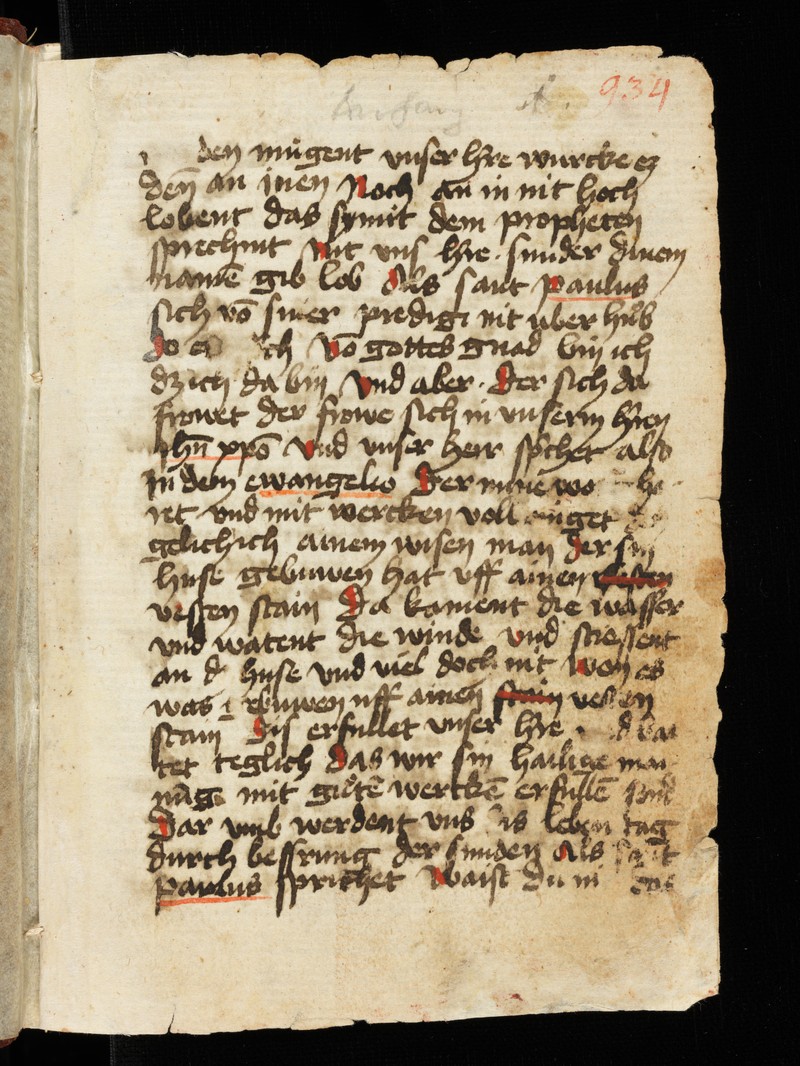 934
den mugent unser hre wurcke ez
den an jnen Noch an in nit hoch
lobent das sy mit dem propheten
sprechint Nit uns hre sunder dinem
namē gib lob Als sant paulus
sich vō siner predigi nit uber hůb
Do er ch Vō gottes gnad bin ich
dz ich da bin Vnd aber Der sich da
frowet der frowe sich in unserm hren
jhū xpō Vnd unser herr spchet also
in dem ewangelio Der mine wo
ret vnd mit wercken voll get
gelich ich ainem wisen man Der sin
huse gebuwen hat uff ainen
vesten stain Da koment die wasser
vnd watent die winde vnd stiessent
an dz huse vnd viel doch nit Won es
was buwen uff ainen stain vesten
stain Dis erfullet unser hre
tet teglich Das wir sin hailige
mit gůtē wercken erfullē
Dar umb werdent uns leben tag
durch bessrung der sunden Als sant
Paulus sprichet Waist du das